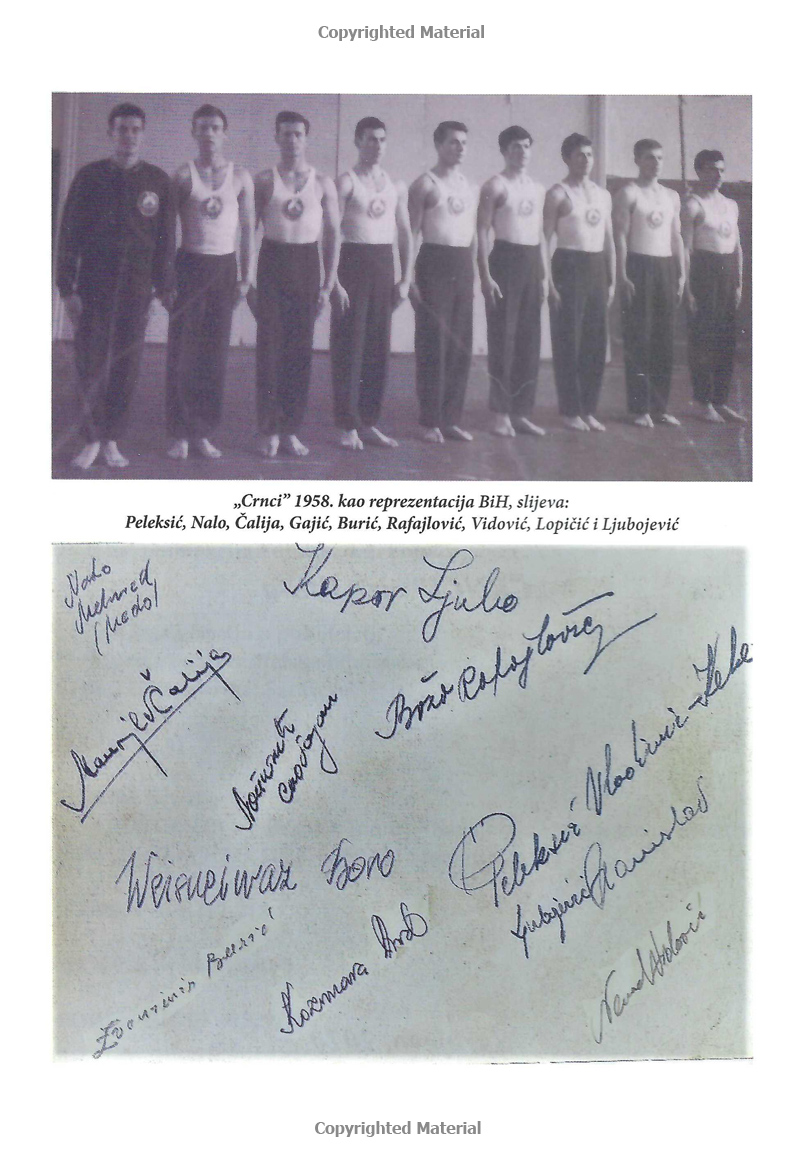 Copyrighted Material
„Crnci” 1958. kao reprezentacija BiH, slijeva:
Peleksić, Nalo, Čalija, Gajić, Burić, Rafajlović, Vidović, Lopičić i Ljubojević
Nalo
Mehmed
(Medo)
Kapor Ljubo
Božo Rafajlović
Manojlo Čalija
Peleksić Vladimir - Keke
Boro
Ljubojević Stanislav
Zvonimir Burić
Kozmara
Nenad Vidović
Copyrighted Material